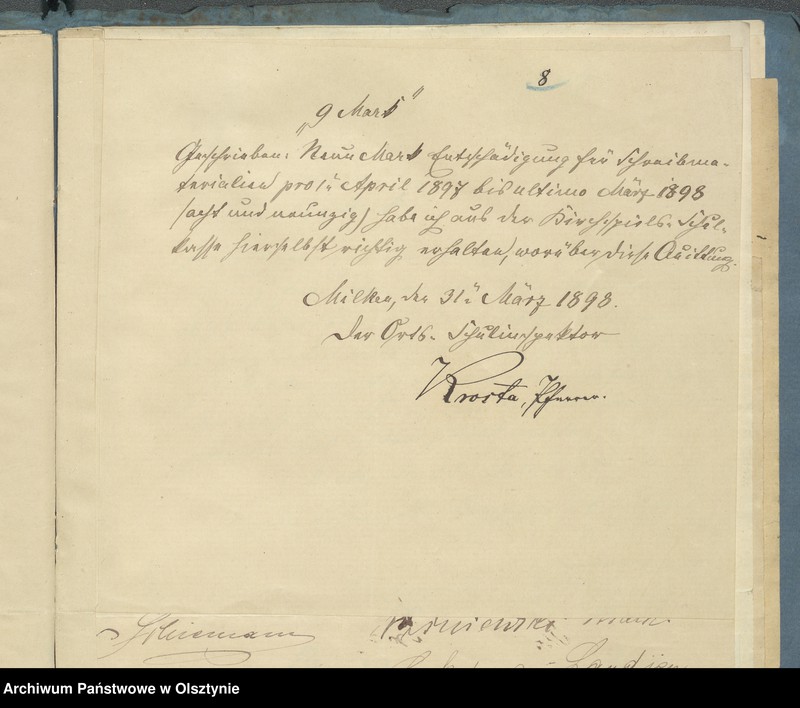 8
"9 Mark"
Geschrieben: Neun Mark Entschädigung für Schreibma-
terialien pro 1ii April 1897 bis ultimo März 1898
(acht und neunzig) habe ich aus der Kirchspiels-Schul-
kasse hierselbst richtig erhalten, worüber diese Quittung.
Milken, den 31ii März 1898.
Der Orts-Schulinspektor
Krosta, Pfarrer.
Schiemann
Archiwum Państwowe w Olsztynie